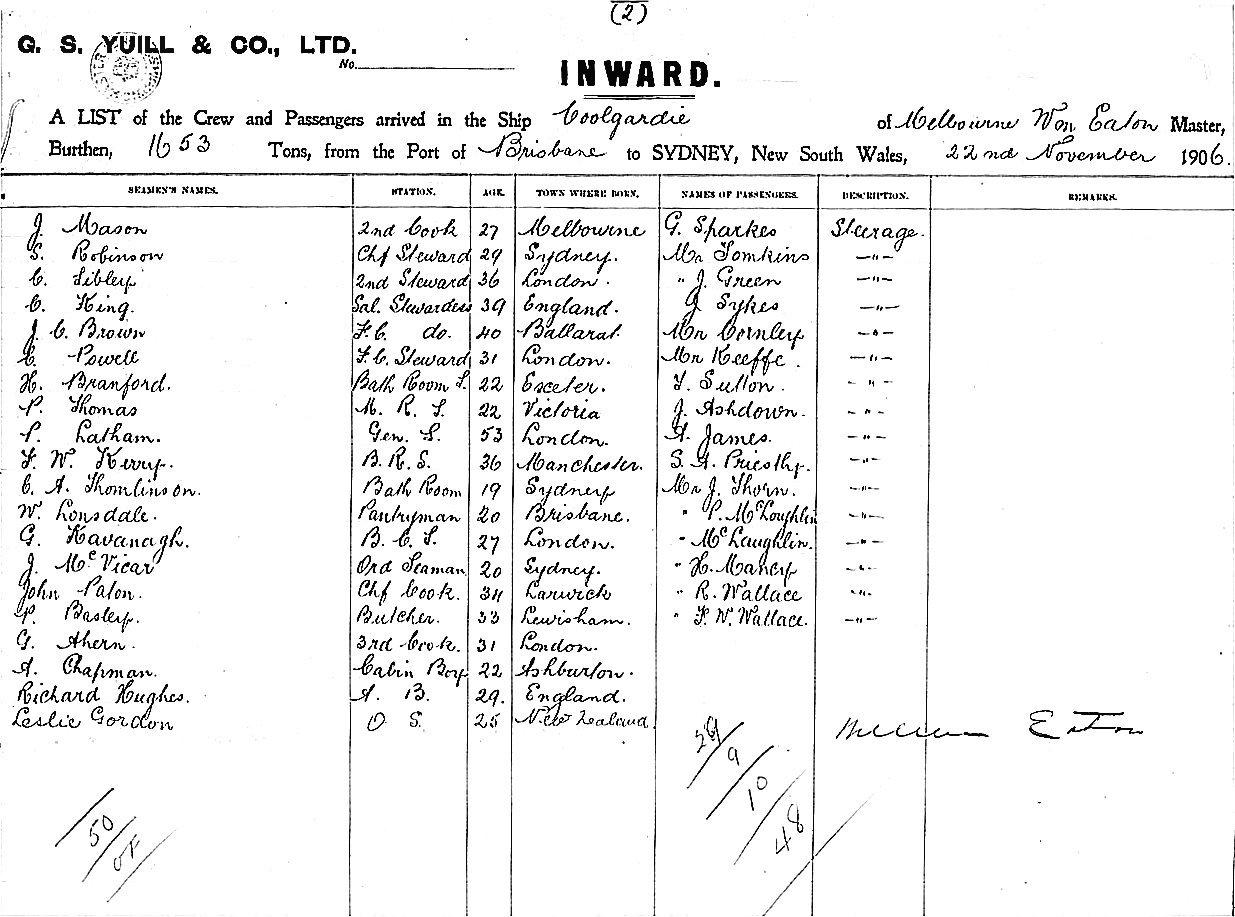 (2)
G. S. YUILL & CO., LTD.
No.
INWARD.
A LIST of the Crew and Passengers arrived in the Ship Coolgardie of Melbourne Wm Eaton Master,
Burthen, 1653 Tons, from the Port of Brisbane to SYDNEY, New South Wales, 22nd November 1906.
SEAMEN'S NAMES. STATION. AGE. TOWN WHERE BORN. NAMES OF PASSENGERS. DESCRIPTION. REMARKS.
J. Mason 2nd Cook 27 Melbourne G. Sparkes Steerage.
S. Robinson Chf Steward 29 Sydney. Mr Tomkins —"—
C. Sibley 2nd Steward 36 London. " J. Green —"—
C. King. Sal. Stewardess 39 England. J Sykes —"—
J. C. Brown F.C. do. 40 Ballarat. Mr Cornley —"—
C. Powell F.C. Steward 31 London. Mr Keeffe. —"—
H. Branford. Bath Room S. 22 Exeter. T. Sutton. —"—
P. Thomas M. R. S. 22 Victoria J. Ashdown. —"—
P. Latham. Gen. S. 53 London. A. James. —"—
F. W. Kerry. B. R. S. 36 Manchester. S. A. Priestly. —"—
C. A. Thomlinson. Bath Room 19 Sydney Mr J. Thorn. —"—
W. Lonsdale. Pantryman 20 Brisbane. " P. McLoughlin —"—
G. Kavanagh. B. C. S. 27 London. " McLaughlin. —"—
J. McVicar Ord Seaman 20 Sydney. " H. Maney —"—
John Paton. Chf Cook. 34 Larwick " R. Wallace —"—
P. Basley. Butcher. 33 Lewisham. " F. W. Wallace. —"—
G. Ahern. 3rd Cook. 31 London.
A. Chapman. Cabin Boy 22 Ashburton.
Richard Hughes. A. B. 29. England.
Leslie Gordon O S. 25 New Zealand
William Eaton
29/9/10/48
50/